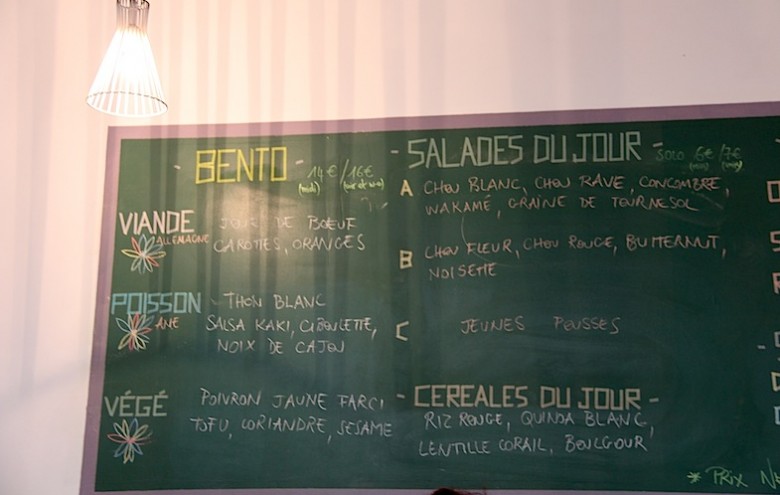 - BENTO - 14€/16€
(midi) (soir et w-e)
VIANDE
ALLEMAGNE
JOUE DE BŒUF
CAROTTES, ORANGES
POISSON
THON BLANC
SALSA KAKI, CIBOULETTE,
NOIX DE CAJOU
VÉGÉ
POIVRON JAUNE FARCI
TOFU, CORIANDRE, SESAME
- SALADES DU JOUR - SOLO 6€/7€
A CHOU BLANC, CHOU RAVE, CONCOMBRE,
WAKAMÉ, GRAINE DE TOURNESOL
B CHOU FLEUR, CHOU ROUGE, BUTTERNUT,
NOISETTE
C JEUNES POUSSES
- CEREALES DU JOUR -
RIZ ROUGE, QUINOA BLANC,
LENTILLE CORAIL, BOULGOUR
* PRIX